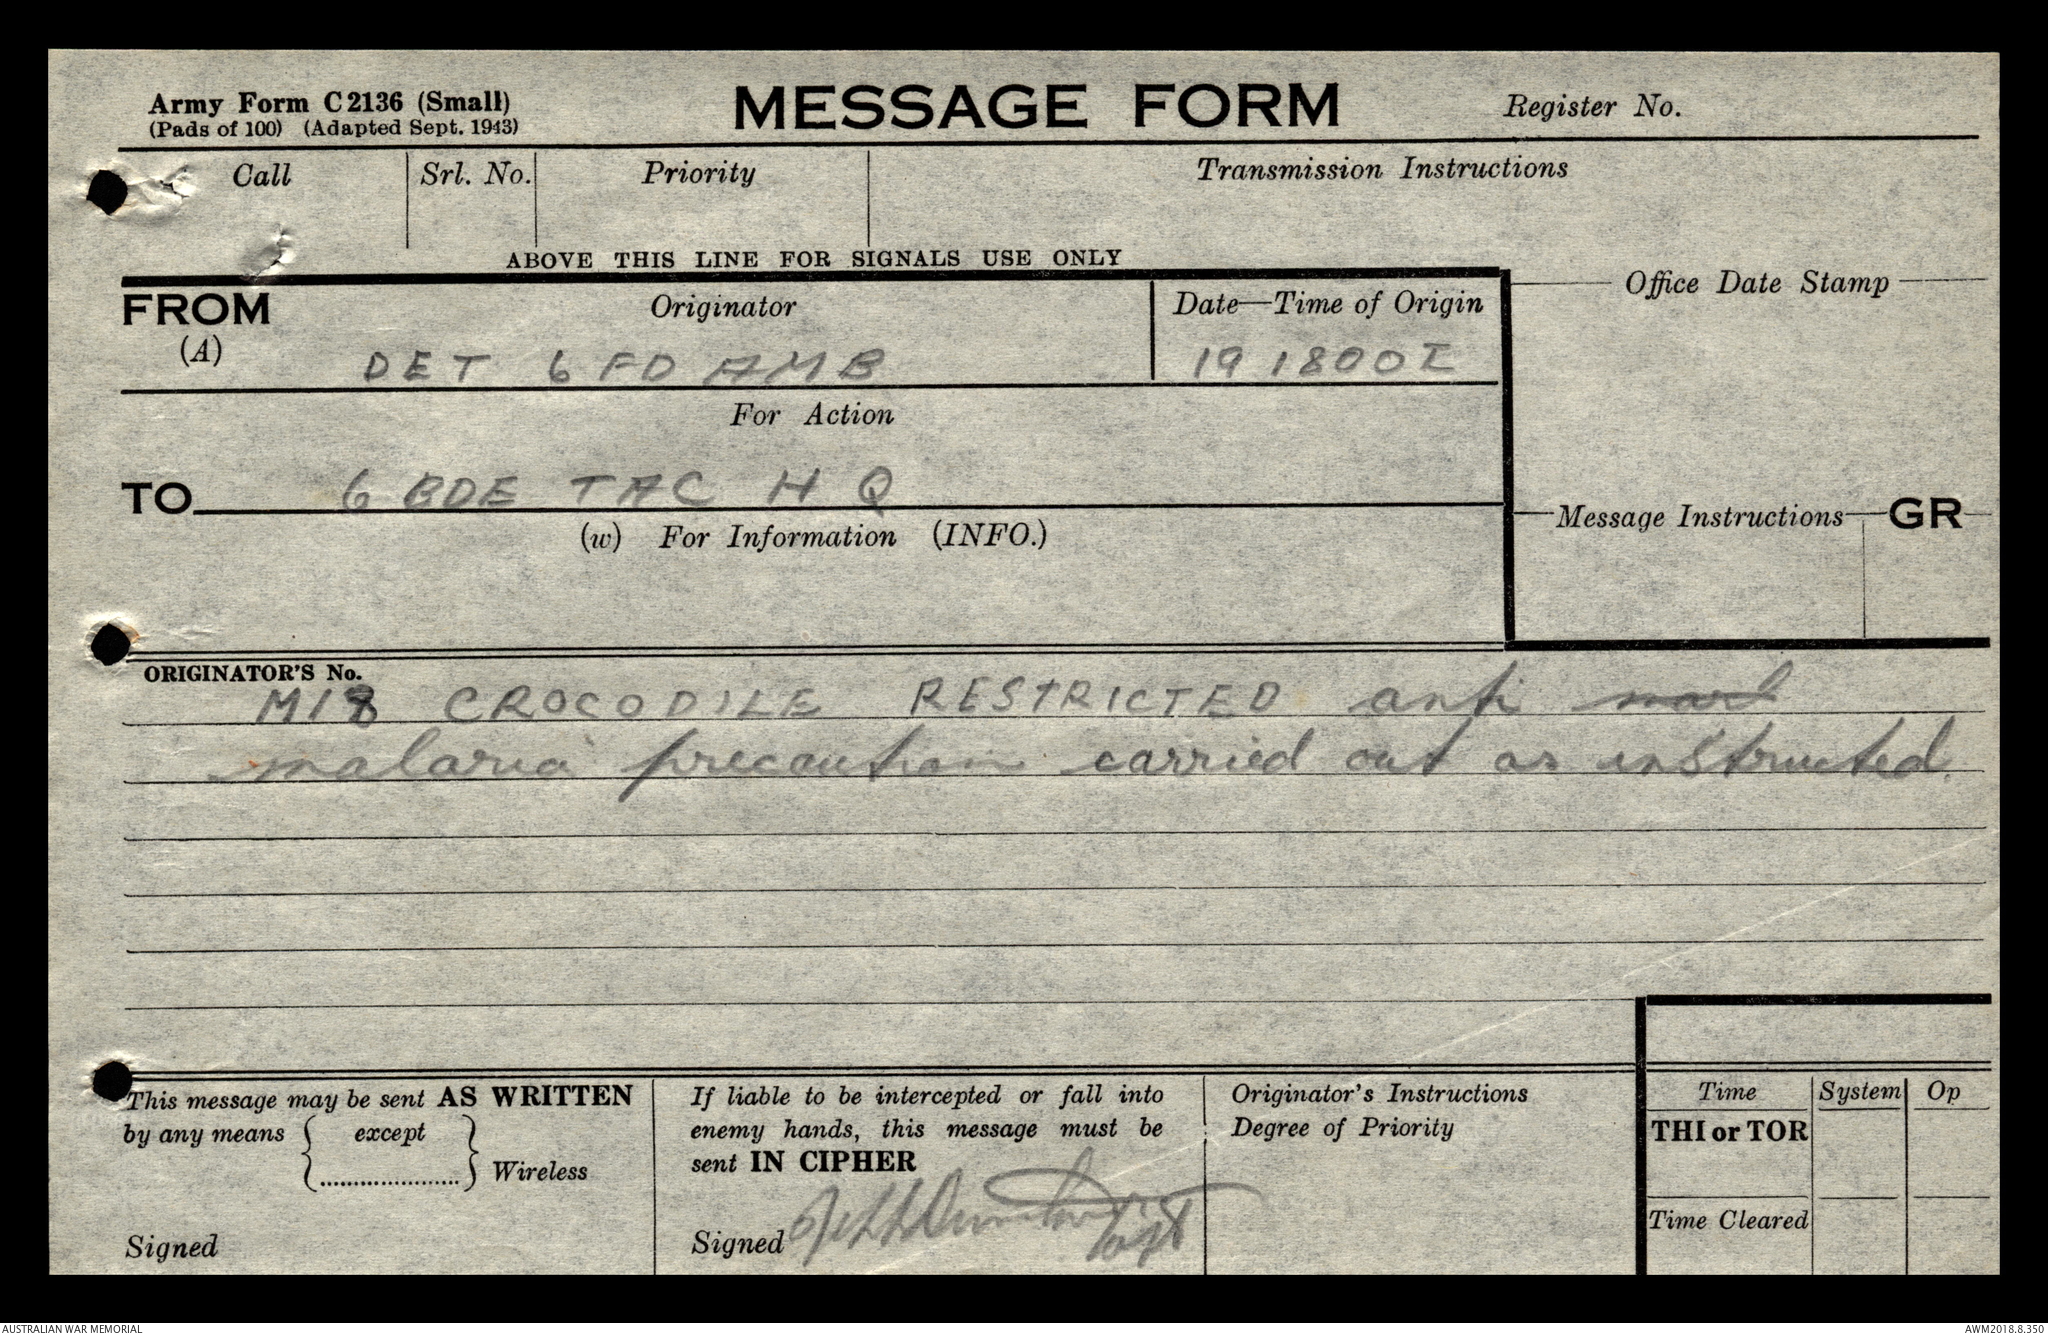 Army Form C2136 (Small)
(Pads of 100) (Adapted Sept. 1943)
MESSAGE FORM
Register No.
Call
Srl. No.
Priority
Transmission Instructions
ABOVE THIS LINE FOR SIGNALS USE ONLY
FROM
(A)
Originator
DET 6 FD AMB
Date—Time of Origin
19 1800 I
Office Date Stamp
For Action
TO 6 BDE TAC H Q
(w) For Information (INFO.)
Message Instructions
GR
ORIGINATOR'S No.
M18 CROCODILE RESTRICTED anti
malaria precaution carried out as instructed.
This message may be sent AS WRITTEN
by any means { except
....................... } Wireless
Signed
If liable to be intercepted or fall into
enemy hands, this message must be
sent IN CIPHER
Signed
Originator's Instructions
Degree of Priority
Time
System
Op
THI or TOR
Time Cleared
AUSTRALIAN WAR MEMORIAL
AWM2018.8.350